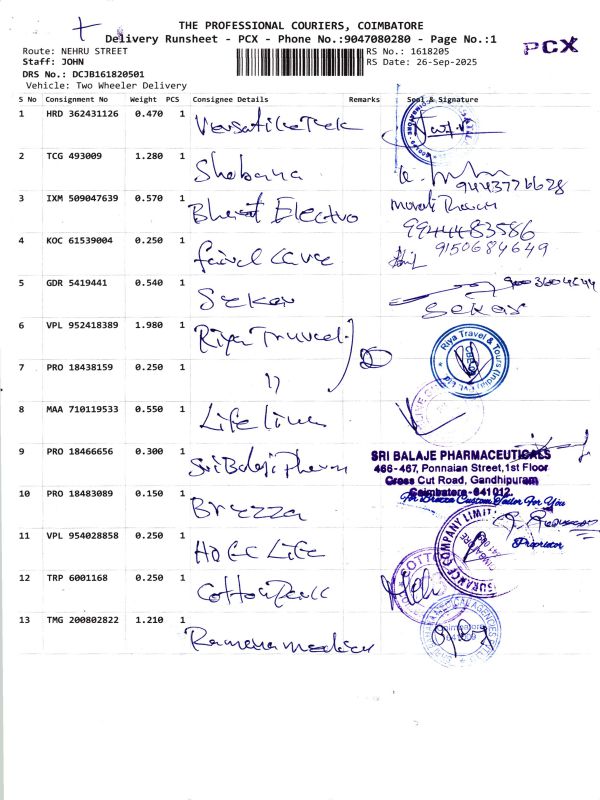 THE PROFESSIONAL COURIERS, COIMBATORE
Delivery Runsheet - PCX - Phone No.:9047080280 - Page No.:1
PCX
Route: NEHRU STREET RS No.: 1618205
Staff: JOHN RS Date: 26-Sep-2025
DRS No.: DCJB161820501
Vehicle: Two Wheeler Delivery
S No Consignment No Weight PCS Consignee Details Remarks Seal & Signature
1 HRD 362431126 0.470 1
2 TCG 493009 1.280 1 Shabana
9443776628
3 IXM 509047639 0.570 1 Bharat Electro
9944483586
4 KOC 61539004 0.250 1
9150684649
5 GDR 5419441 0.540 1 Sekar
Sekar
6 VPL 952418389 1.980 1 Riya Travel
Riya Travel & Tours (India) Pvt. Ltd
7 PRO 18438159 0.250 1 11
8 MAA 710119533 0.550 1 Life line
9 PRO 18466656 0.300 1 Sri Balaji Pharm
SRI BALAJE PHARMACEUTICALS
466-467, Ponnaian Street, 1st Floor
Cross Cut Road, Gandhipuram
Coimbatore-641012
10 PRO 18483089 0.150 1 Brezza
Custom Tailor For You
Proprietor
11 VPL 954028858 0.250 1 HDFC Life
12 TRP 6001168 0.250 1
13 TMG 200802822 1.210 1 Ramana medical